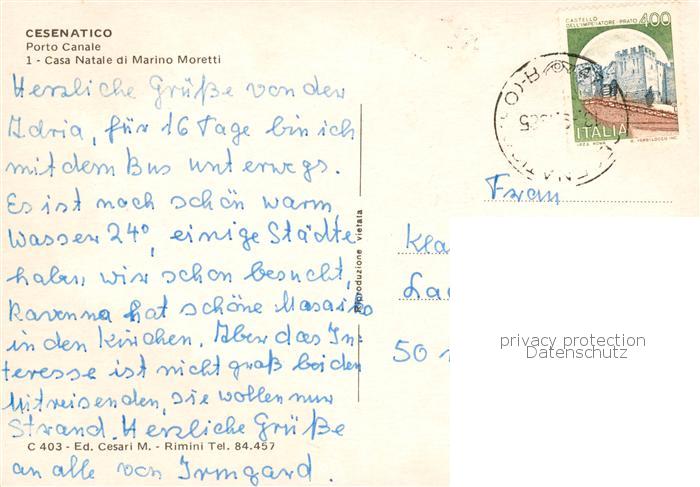 CESENATICO
Porto Canale
1 - Casa Natale di Marino Moretti
Herzliche Grüße von der
Adria, für 16 Tage bin ich
mit dem Bus unterwegs.
Es ist noch schön warm
Wasser 24°, einige Städte
haben wir schon besucht,
Ravenna hat schöne Mosaiks
in den Kirchen. Aber das In-
teresse ist nicht groß bei den
Mitreisenden, sie wollen nur
Strand. Herzliche Grüße
C 403 - Ed. Cesari M. - Rimini Tel. 84.457
an alle von Irmgard.
Riproduzione vietata
CASTELLO
DELL'IMPERATORE-PRATO 400
ITALIA
Frau
Kla
50 1
privacy protection
Datenschutz